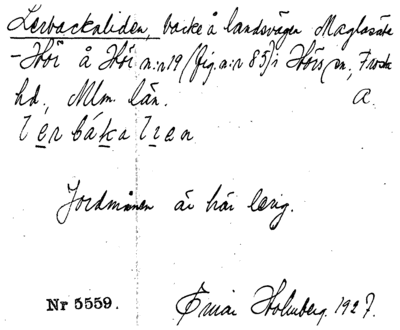 Lerbackaliden, backe å landsvägen Maglasäte
- Höi å Höi n:r 19 (fig. n:r 85) i Höis sn., Frosta
hd., Mlm. län. A.
lerbákalien
Jordmånen är här lerig.
Nr 5559. Einar Holmberg. 1927.